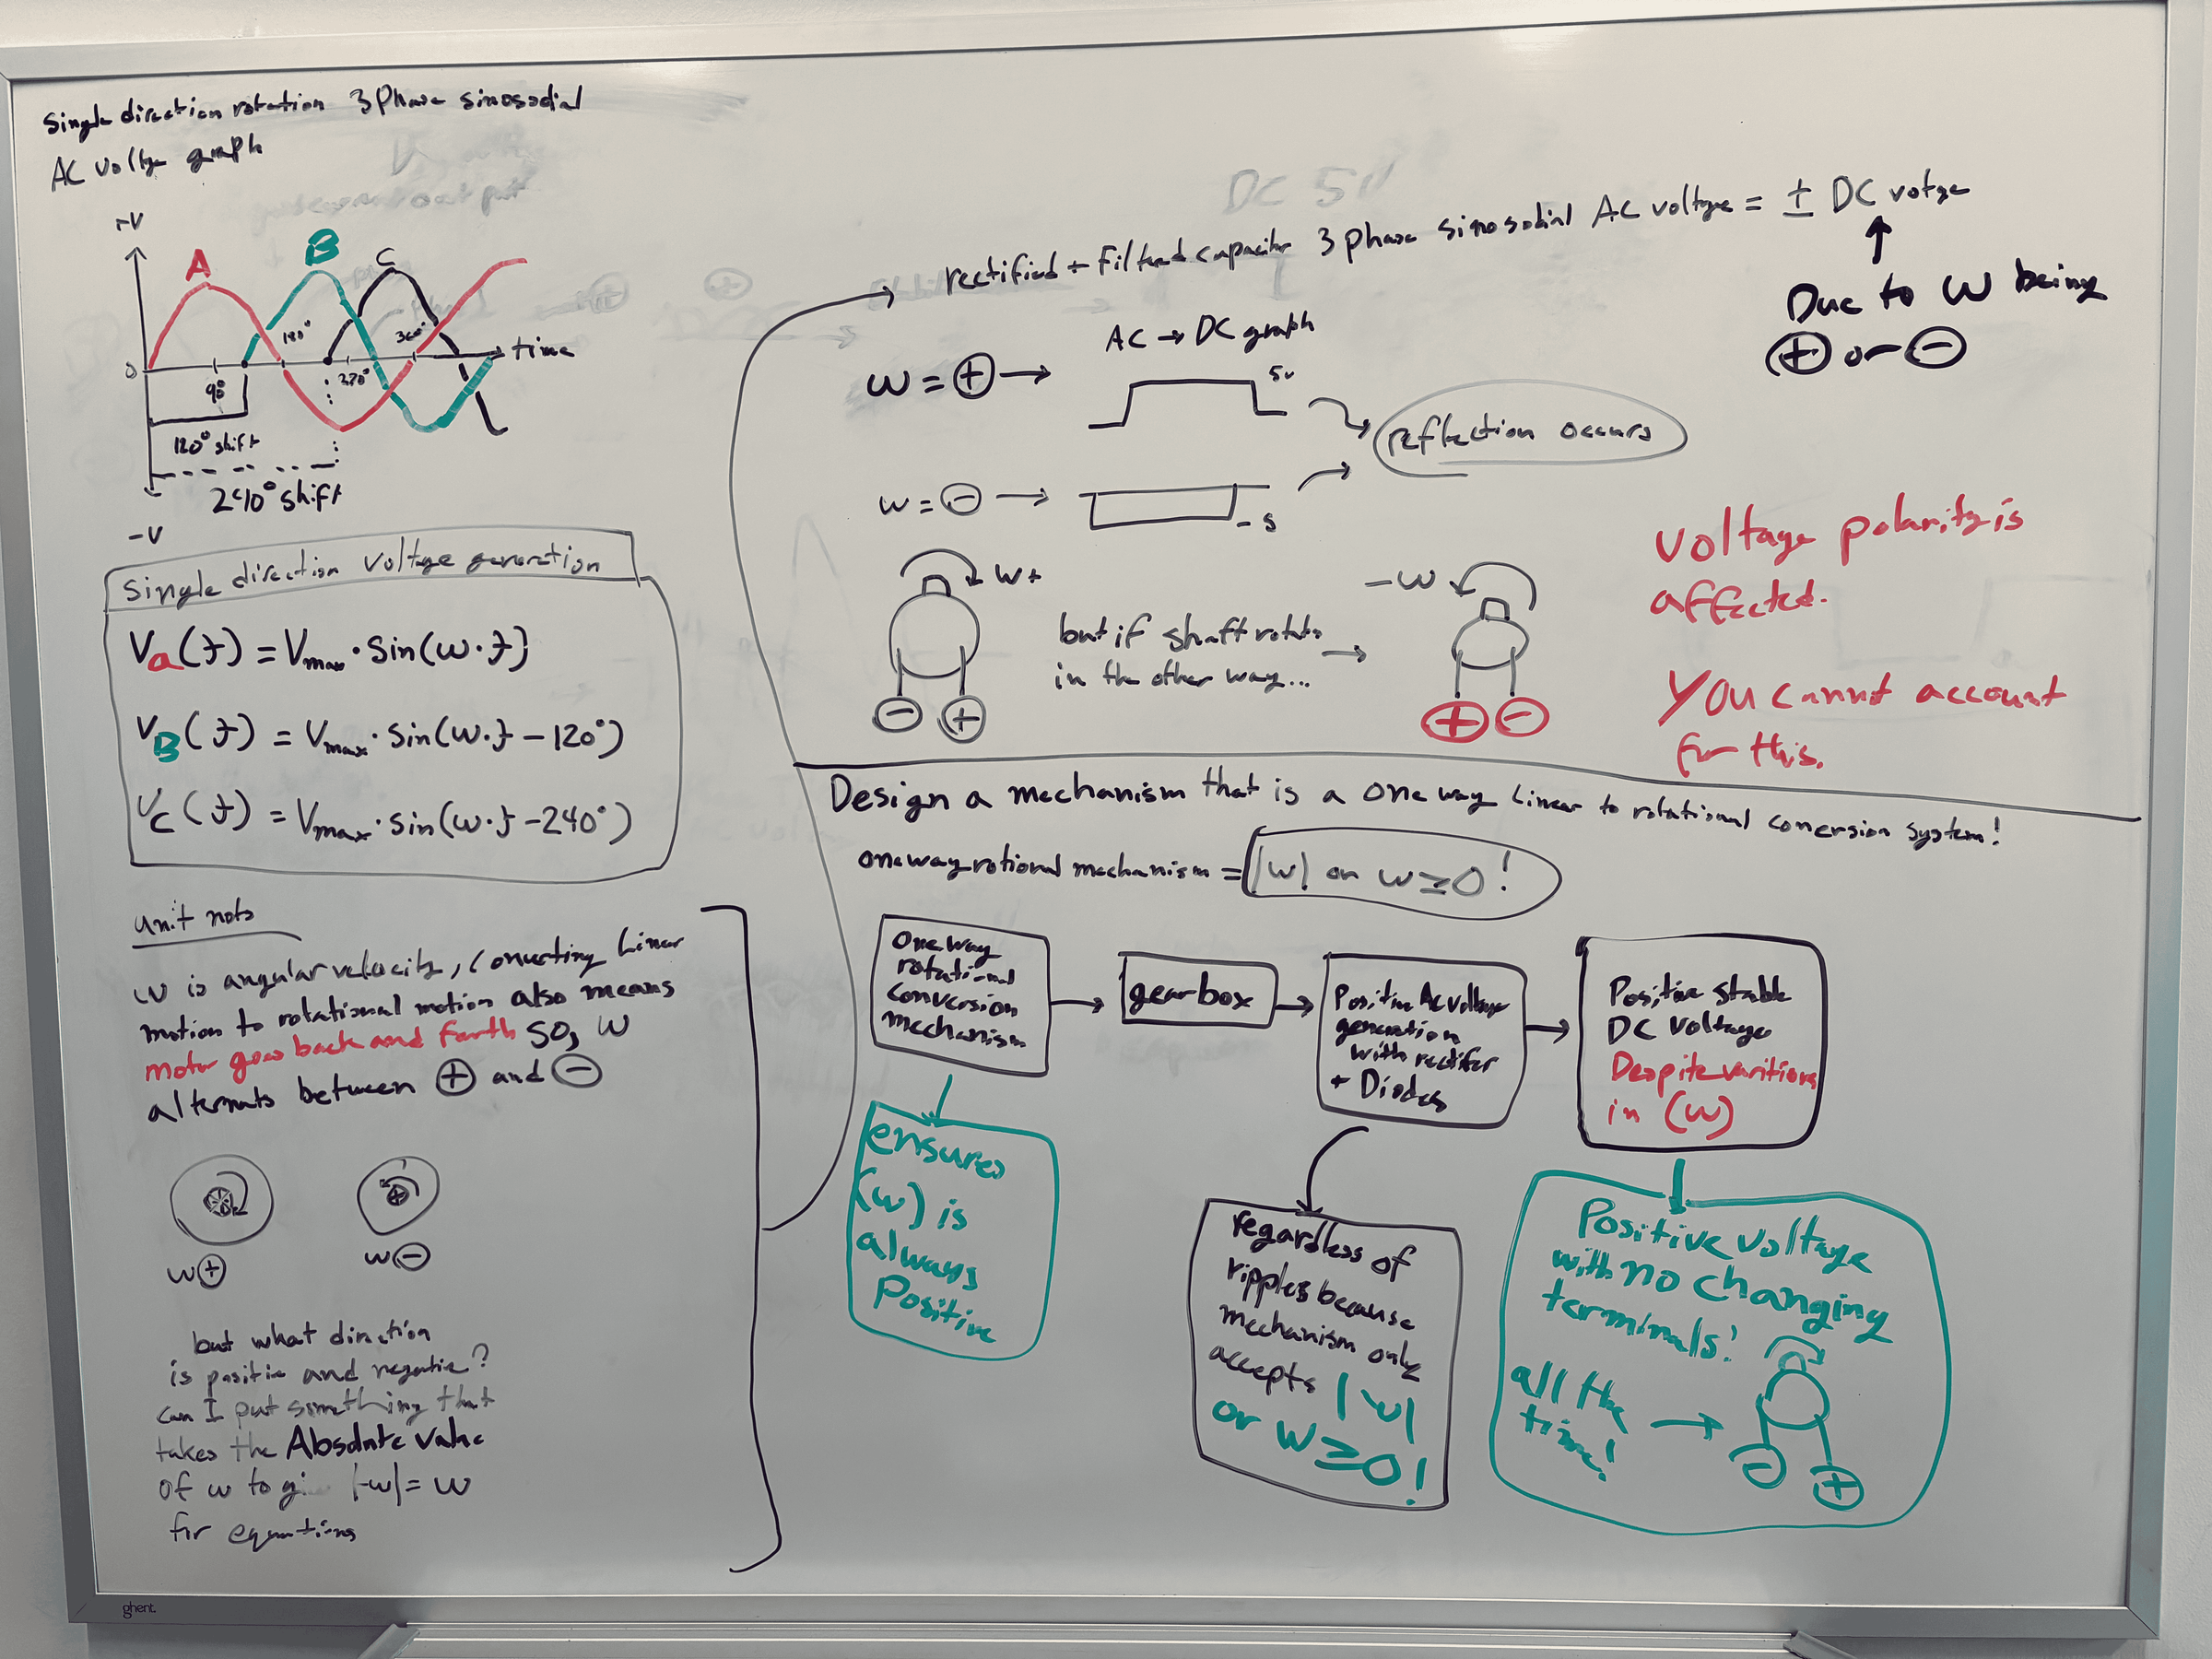 Single direction rotation 3 Phase sinosodial
AC voltge graph
+V
A
B
C
0
90°
180°
270°
360°
time
120° shift
240° shift
-V
Single direction voltage generation
Va(t) = Vmax · sin(w·t)
VB(t) = Vmax · sin(w·t - 120°)
VC(t) = Vmax · sin(w·t - 240°)
unit nots
W is angular velocity, converting Linear
motion to rotational motion also means
motor goes back and forth so, W
alternats between ⊕ and ⊖
w⊕
w⊖
but what direction
is positie and negatie?
can I put something that
takes the Absolute value
of w to gi |-w| = w
for equations
DC 5V
rectified + Filtered capacitor 3 phase sinosodial AC voltge = ± DC votge
Due to W being
⊕ or ⊖
AC → DC graph
W = ⊕ →
5v
reflection occurs
w = ⊖ →
-5
W+
but if shaft rotats
in the other way...
-W
⊖ ⊕
⊕ ⊖
Voltage polarity is
affected.
You cannot account
for this.
Design a mechanism that is a one way Linear to rotational conersion system!
one way rotional mechanism = |w| or w ≥ 0!
one way
rotational
conversion
mechanism
gearbox
Positive AC voltage
generation
with rectifer
+ Diodes
Positive stable
DC voltage
Despite varitions
in (w)
ensures
(w) is
always
Positive
regardless of
ripples because
mechanism only
accepts |w|
or w ≥ 0!
Positive voltage
with no changing
terminals!
all the
time!
⊖ ⊕
ghent.